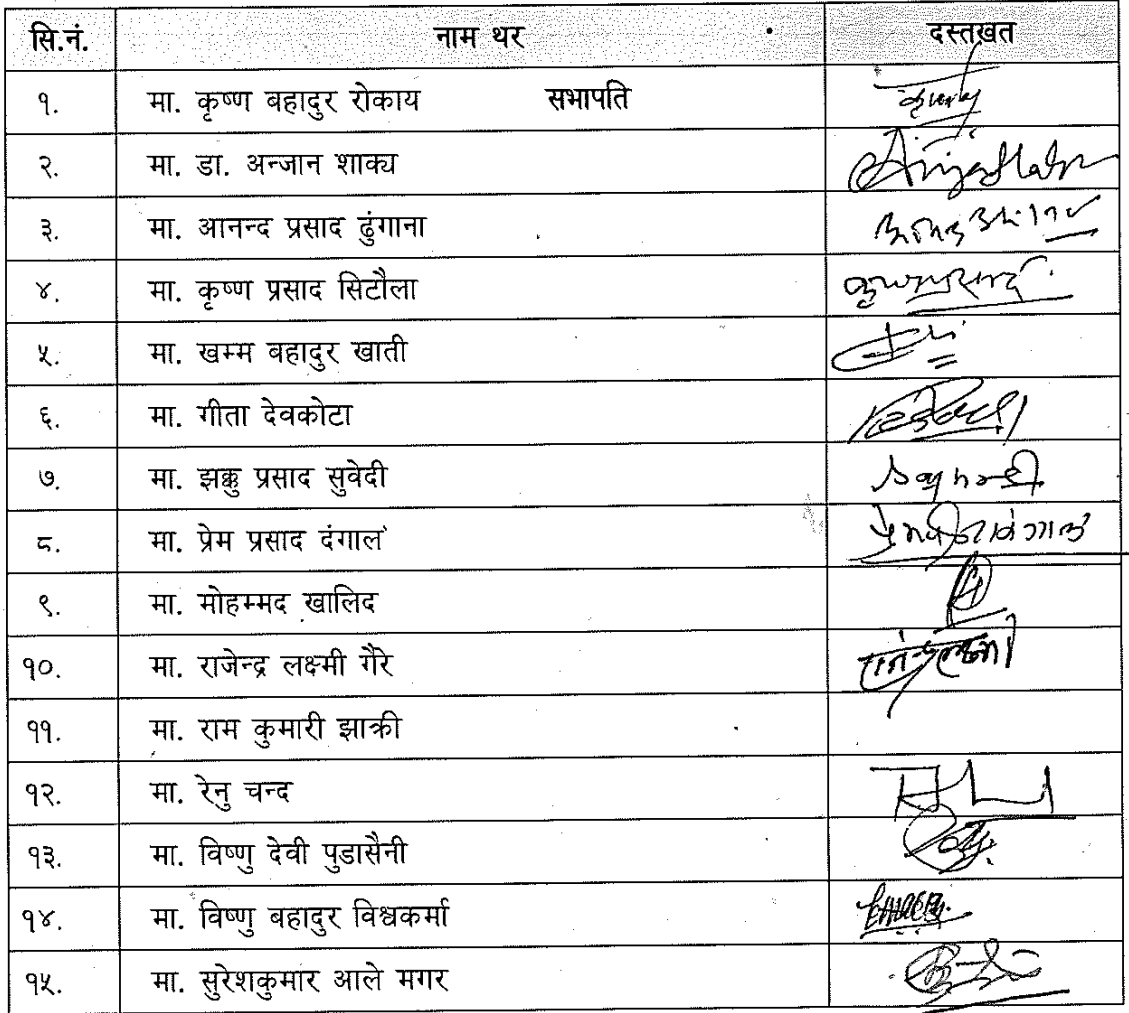 सि.नं. नाम थर दस्तखत
१. मा. कृष्ण बहादुर रोकाय सभापति
२. मा. डा. अन्जान शाक्य
३. मा. आनन्द प्रसाद ढुंगाना
४. मा. कृष्ण प्रसाद सिटौला
५. मा. खम्म बहादुर खाती
६. मा. गीता देवकोटा
७. मा. झक्कु प्रसाद सुवेदी
८. मा. प्रेम प्रसाद दंगाल
९. मा. मोहम्मद खालिद
१०. मा. राजेन्द्र लक्ष्मी गैरे
११. मा. राम कुमारी झाक्री
१२. मा. रेनु चन्द
१३. मा. विष्णु देवी पुडासैनी
१४. मा. विष्णु बहादुर विश्वकर्मा
१५. मा. सुरेशकुमार आले मगर